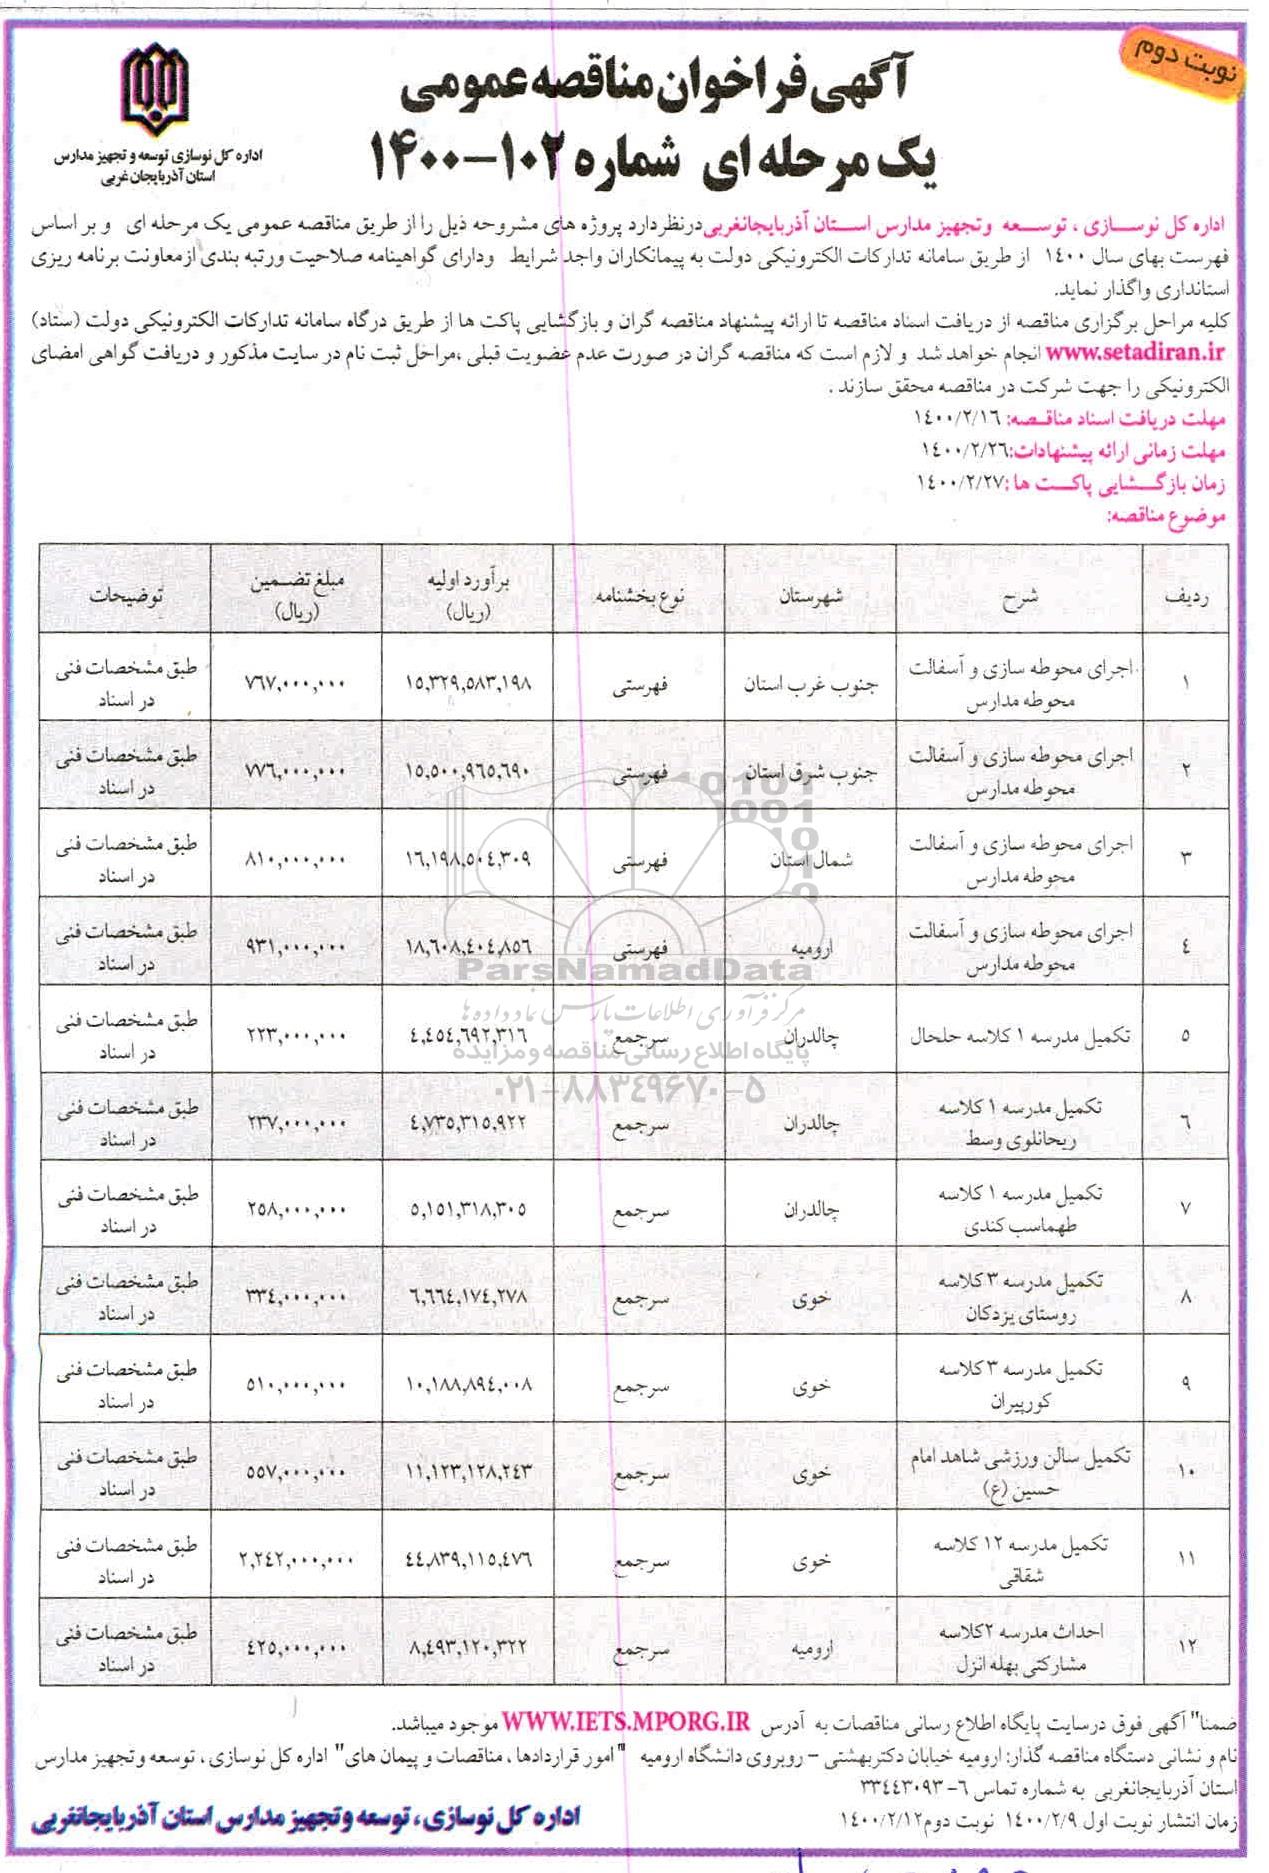 نوبت دوم
آگهی فراخوان مناقصه عمومی
یک مرحله ای شماره ۱۰۲-۱۴۰۰
اداره کل نوسازی توسعه و تجهیز مدارس
استان آذربایجان غربی
اداره کل نوسازی ، توسعه وتجهیز مدارس استان آذربایجانغربی درنظردارد پروژه های مشروحه ذیل را از طریق مناقصه عمومی یک مرحله ای و بر اساس
فهرست بهای سال ۱۴۰۰ از طریق سامانه تدارکات الکترونیکی دولت به پیمانکاران واجد شرایط ودارای گواهینامه صلاحیت ورتبه بندی ازمعاونت برنامه ریزی
استانداری واگذار نماید.
کلیه مراحل برگزاری مناقصه از دریافت اسناد مناقصه تا ارائه پیشنهاد مناقصه گران و بازگشایی پاکت ها از طریق درگاه سامانه تدارکات الکترونیکی دولت (ستاد)
www.setadiran.ir انجام خواهد شد و لازم است که مناقصه گران در صورت عدم عضویت قبلی ،مراحل ثبت نام در سایت مذکور و دریافت گواهی امضای
الکترونیکی را جهت شرکت در مناقصه محقق سازند .
مهلت دریافت اسناد مناقصه: ۱۴۰۰/۲/۱۶
مهلت زمانی ارائه پیشنهادات:۱۴۰۰/۲/۲۶
زمان بازگشایی پاکت ها :۱۴۰۰/۲/۲۷
موضوع مناقصه:
ردیف شرح شهرستان نوع بخشنامه برآورد اولیه (ریال) مبلغ تضمین (ریال) توضیحات
۱ اجرای محوطه سازی و آسفالت محوطه مدارس جنوب غرب استان فهرستی ۱۵,۳۲۹,۵۸۳,۱۹۸ ۷۶۷,۰۰۰,۰۰۰ طبق مشخصات فنی در اسناد
۲ اجرای محوطه سازی و آسفالت محوطه مدارس جنوب شرق استان فهرستی ۱۵,۵۰۰,۹۶۵,۶۹۰ ۷۷۶,۰۰۰,۰۰۰ طبق مشخصات فنی در اسناد
۳ اجرای محوطه سازی و آسفالت محوطه مدارس شمال استان فهرستی ۱۶,۱۹۸,۵۰۴,۳۰۹ ۸۱۰,۰۰۰,۰۰۰ طبق مشخصات فنی در اسناد
۴ اجرای محوطه سازی و آسفالت محوطه مدارس ارومیه فهرستی ۱۸,۶۰۸,۴۰۴,۸۵۶ ۹۳۱,۰۰۰,۰۰۰ طبق مشخصات فنی در اسناد
۵ تکمیل مدرسه ۱ کلاسه حلحال چالدران سرجمع ۴,۴۵۴,۶۹۲,۳۱۶ ۲۲۳,۰۰۰,۰۰۰ طبق مشخصات فنی در اسناد
۶ تکمیل مدرسه ۱ کلاسه ریحانلوی وسط چالدران سرجمع ۴,۷۳۵,۳۱۵,۹۲۲ ۲۳۷,۰۰۰,۰۰۰ طبق مشخصات فنی در اسناد
۷ تکمیل مدرسه ۱ کلاسه طهماسب کندی چالدران سرجمع ۵,۱۵۱,۳۱۸,۳۰۵ ۲۵۸,۰۰۰,۰۰۰ طبق مشخصات فنی در اسناد
۸ تکمیل مدرسه ۳ کلاسه روستای یزدکان خوی سرجمع ۶,۶۶۴,۱۷۴,۲۷۸ ۳۳۴,۰۰۰,۰۰۰ طبق مشخصات فنی در اسناد
۹ تکمیل مدرسه ۳ کلاسه کورپیران خوی سرجمع ۱۰,۱۸۸,۸۹۴,۰۰۸ ۵۱۰,۰۰۰,۰۰۰ طبق مشخصات فنی در اسناد
۱۰ تکمیل سالن ورزشی شاهد امام حسین (ع) خوی سرجمع ۱۱,۱۲۳,۱۲۸,۲۴۳ ۵۵۷,۰۰۰,۰۰۰ طبق مشخصات فنی در اسناد
۱۱ تکمیل مدرسه ۱۲ کلاسه شقاقی خوی سرجمع ۴۴,۸۳۹,۱۱۵,۴۷۶ ۲,۲۴۲,۰۰۰,۰۰۰ طبق مشخصات فنی در اسناد
۱۲ احداث مدرسه ۲کلاسه مشارکتی بهله انزل ارومیه سرجمع ۸,۴۹۳,۱۲۰,۳۲۲ ۴۲۵,۰۰۰,۰۰۰ طبق مشخصات فنی در اسناد
ParsNamadData
مرکز فرآوری اطلاعات پارس نماد داده‌ها
پایگاه اطلاع رسانی مناقصه و مزایده
۰۲۱-۸۸۳۴۹۶۷۰-۵
ضمنا" آگهی فوق درسایت پایگاه اطلاع رسانی مناقصات به آدرس WWW.IETS.MPORG.IR موجود میباشد.
نام و نشانی دستگاه مناقصه گذار: ارومیه خیابان دکتربهشتی - روبروی دانشگاه ارومیه " امور قراردادها ، مناقصات و پیمان های" اداره کل نوسازی ، توسعه وتجهیز مدارس
استان آذربایجانغربی به شماره تماس ۶-۳۳۴۴۳۰۹۳
زمان انتشار نوبت اول ۱۴۰۰/۲/۹ نوبت دوم۱۴۰۰/۲/۱۲
اداره کل نوسازی ، توسعه وتجهیز مدارس استان آذربایجانغربی